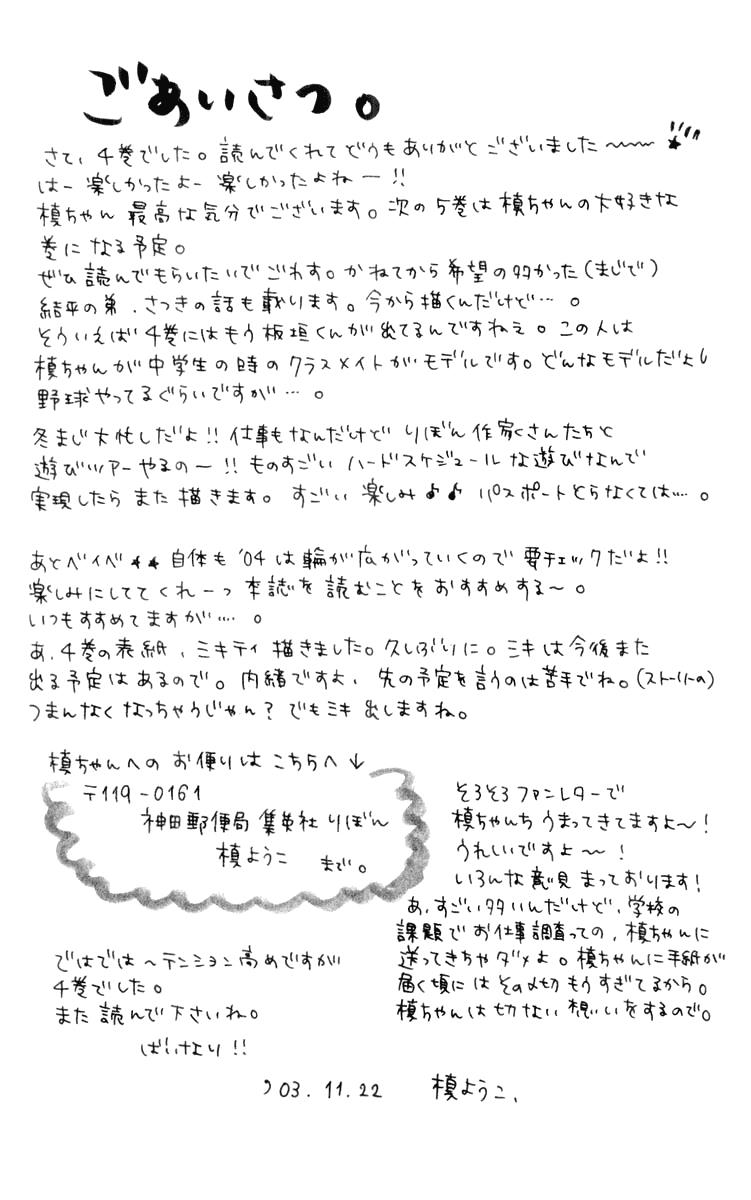 ごあいさつ。
さて、4巻でした。読んでくれてどうもありがとございました〜〜
はー楽しかったよー楽しかったよねー!!
槙ちゃん最高な気分でございます。次の5巻は槙ちゃんの大好きな
巻になる予定。
ぜひ読んでもらいたいでごわす。かねてから希望の多かった(まじで)
結平の弟、さつきの話も載ります。今から描くんだけど…。
そういえば4巻にはもう板垣くんが出てるんですねえ。この人は
槙ちゃんが中学生の時のクラスメイトがモデルです。どんなモデルだよ
野球やってるぐらいですが…。
冬まじ大忙しだよ!!仕事もなんだけどりぼん作家さんたちと
遊びツアーやるの〜!!ものすごいハードスケジュールな遊びなんで
実現したらまた描きます。すごい楽しみ♪♪パスポートとらなくては…。
あとベイベ★★自体も'04は輪が広がっていくので要チェックだよ!!
楽しみにしててくれーっ本誌を読むことをおすすめする〜。
いつもすすめてますが…。
あ、4巻の表紙、ミキティ描きました。久しぶりに。ミキは今後また
出る予定はあるので。内緒ですよ、先の予定を言うのは苦手でね。(ストーリーの)
つまんなくなっちゃうじゃん?でもミキ出しますね。
槙ちゃんへのお便りはこちらへ↓
〒119-0161
神田郵便局集英社りぼん
槙ようこ まで。
そろそろファンレターで
槙ちゃんちうまってきてますよ〜!
うれしいですよ〜!
いろんな意見まっております!
あ、すごい多いんだけど、学校の
課題でお仕事調査っての、槙ちゃんに
送ってきちゃダメよ。槙ちゃんに手紙が
届く頃にはその〆切もうすぎてるから。
槙ちゃんは切ない想いをするので。
ではでは〜テンション高めですが
4巻でした。
また読んで下さいね。
ばいなり!!
'03.11.22 槙ようこ、